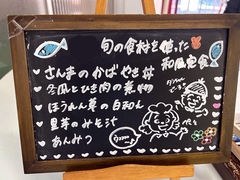 旬の食材を使った
和風定食
さんまのかばやき丼
冬瓜とひき肉の煮物
ほうれん草の白和え
里芋のみそ汁
あんみつ